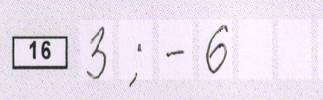 16 3 ; - 6